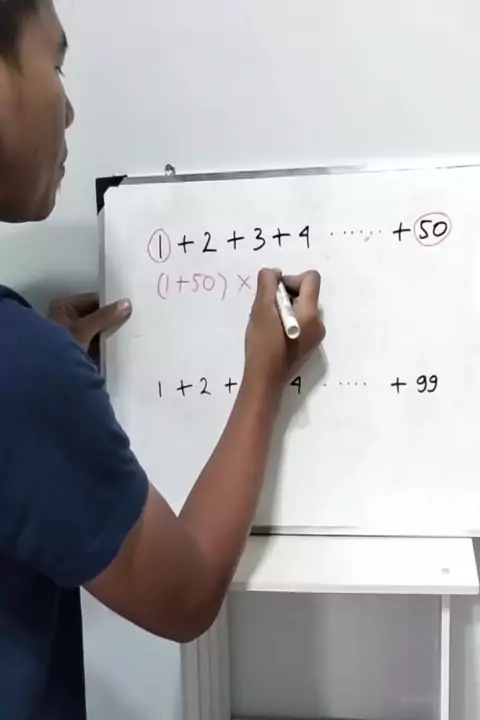 1 + 2 + 3 + 4 ...... + 50
(1+50) ×
1 + 2 + 4 ..... + 99